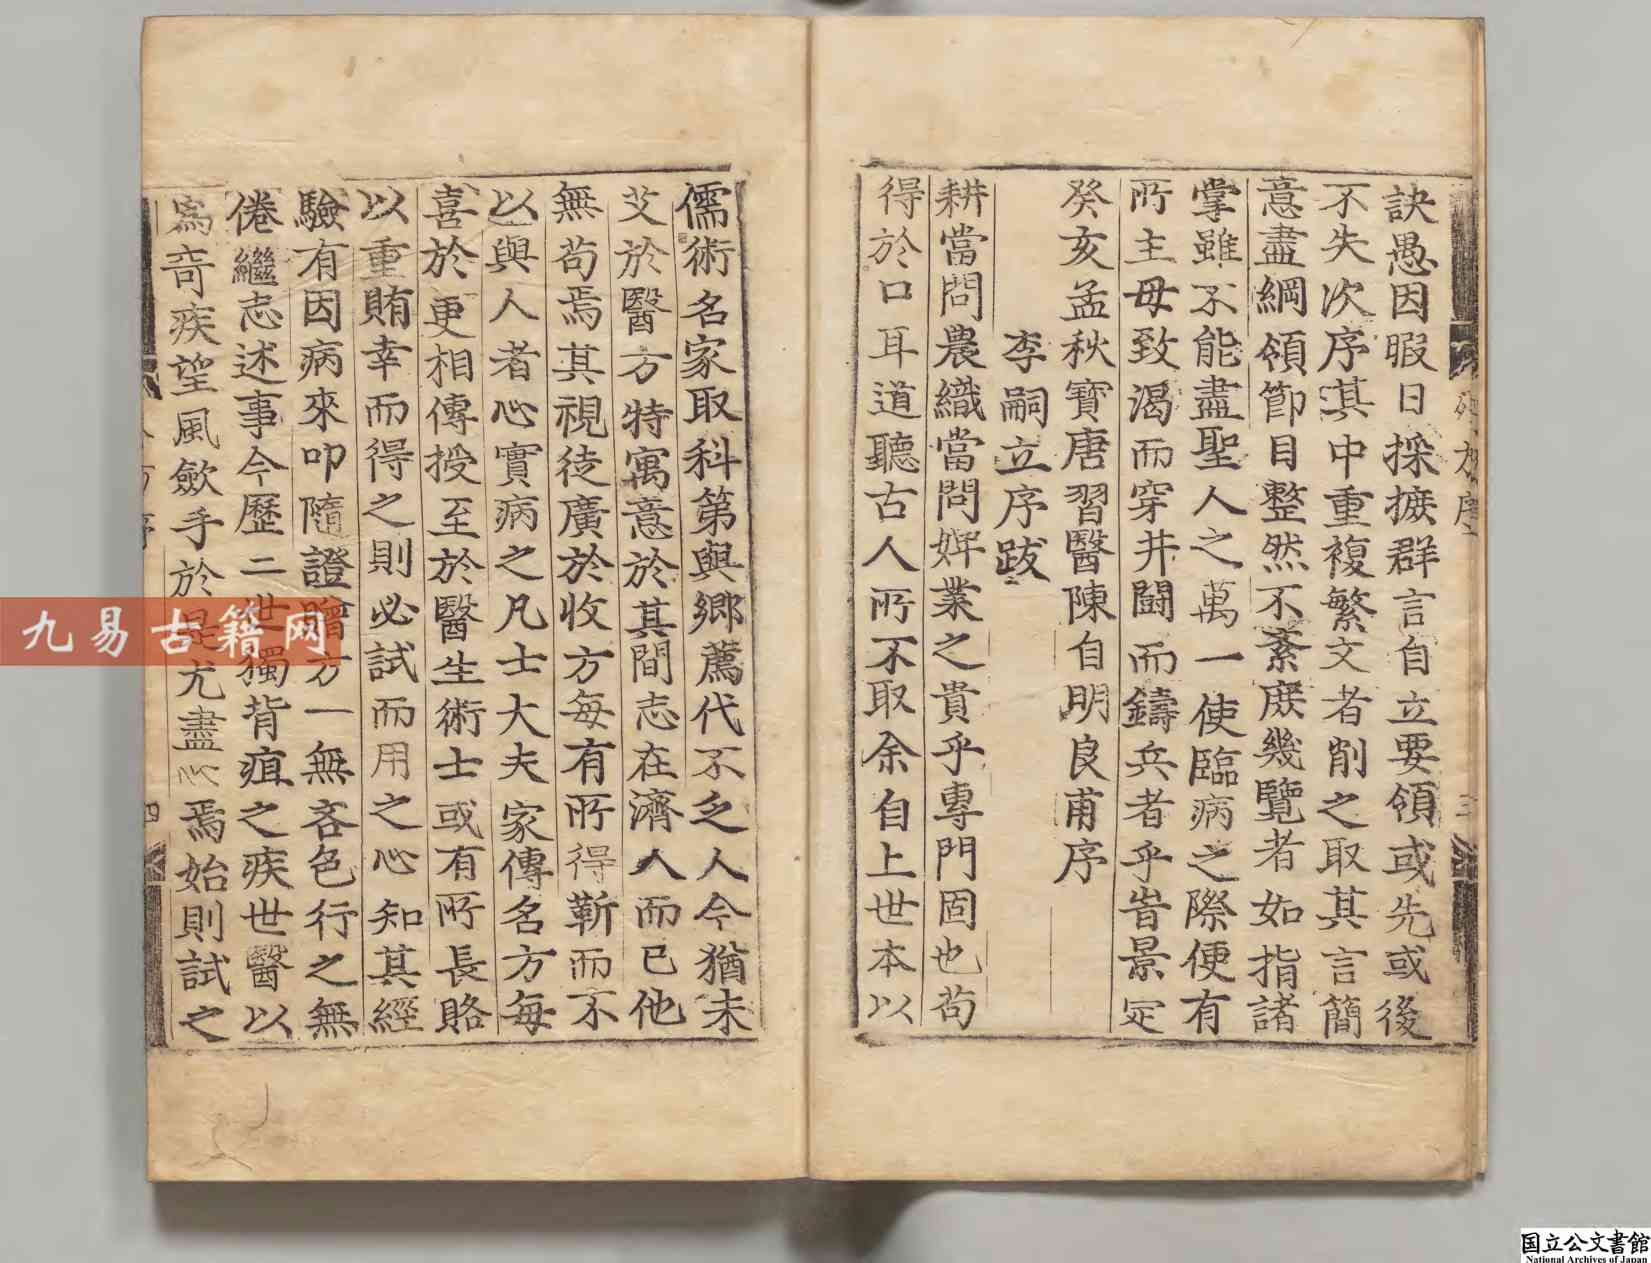 訣愚因暇日採摭群言自立要領或先或後
不失次序其中重複繁文者削之取其言簡
意盡綱領節目整然不紊庶幾覽者如指諸
掌雖不能盡聖人之萬一使臨病之際便有
所主毋致渴而穿井鬪而鑄兵者乎旹景定
癸亥孟秋寶唐習醫陳自明良甫序
李嗣立序跋
耕當問農織當問婢業之貴乎專門固也苟
得於口耳道聽古人所不取余自上世本以
儒術名家取科第與鄉薦代不乏人今猶未
艾於醫方特寓意於其間志在濟人而已他
無苟焉其視徒廣於收方每有所得靳而不
以與人者心實病之凡士大夫家傳名方每
喜於更相傳授至於醫生術士或有所長賂
以重賄幸而得之則必試而用之心知其經
驗有因病來叩隨證贈方一無吝色行之無
倦繼志述事今歷二世獨背疽之疾世醫以
為奇疾望風歛手於是尤盡心焉始則試之
方序
三
四
九易古籍网
国立公文書館
National Archives of Japan